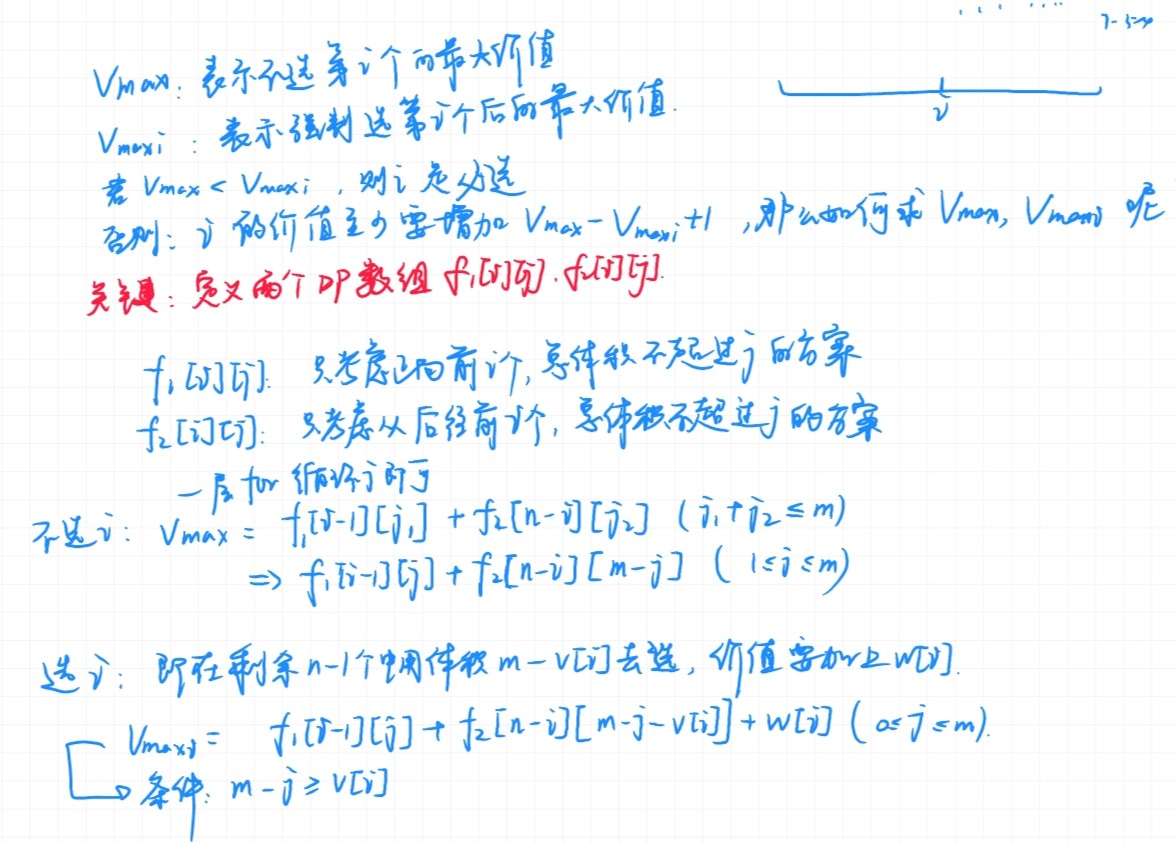 7-5=x
Vmax: 表示不选第i个的最大价值
i
Vmaxi: 表示强制选第i个后的最大价值.
若 Vmax < Vmaxi, 则i是必选
否则: i 的价值至少要增加 Vmax-Vmaxi+1, 那么如何求 Vmax, Vmaxi 呢
关键: 定义两个DP数组 f₁[i][j]. f₂[i][j].
f₁[i][j]: 只考虑正向前i个, 总体积不超过j的方案
f₂[i][j]: 只考虑从后往前i个, 总体积不超过j的方案
一层for循环j即可
不选i: Vmax = f₁[i-1][j₁] + f₂[n-i][j₂] (j₁+j₂≤m)
⇒ f₁[i-1][j] + f₂[n-i][m-j] (1≤j≤m)
选i: 即在剩余n-1个中用体积 m-v[i]去选, 价值要加上w[i].
Vmaxi = f₁[i-1][j] + f₂[n-i][m-j-v[i]] + w[i] (0≤j≤m).
条件: m-j≥v[i]